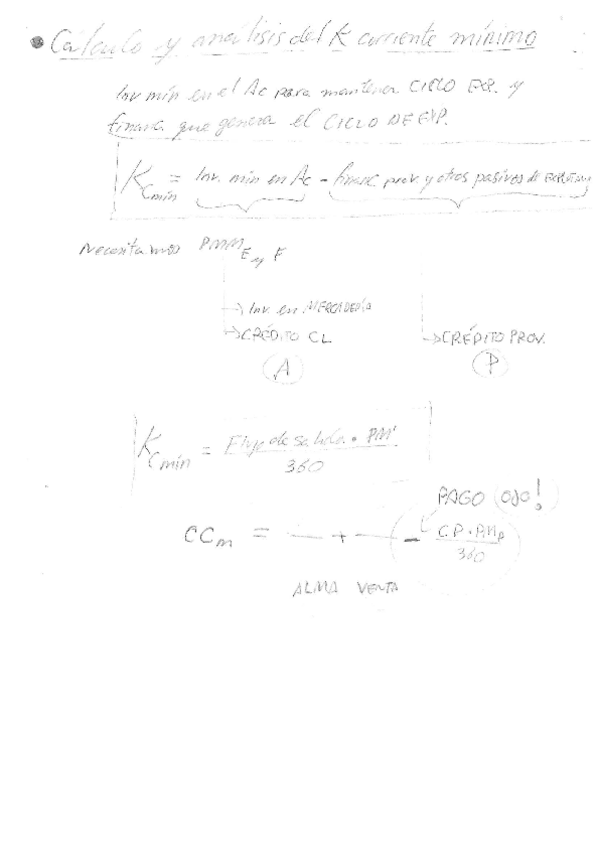 • Cálculo y análisis del K corriente mínimo
Inv mín en el Ac para mantener CICLO EXP. y
financ que genera el CICLO DE EXP.
K Cmín = Inv. mín en Ac - financ prov. y otros pasivos de
Necesitamos PMM E y F
→ Inv. en MERCADERÍA
→ CRÉDITO CL → CRÉDITO PROV.
A P
K Cmín = Flujo de salida · PM' / 360
PAGO OJO!
CCm = — + — - C.P · PMp / 360
ALMA VENTA